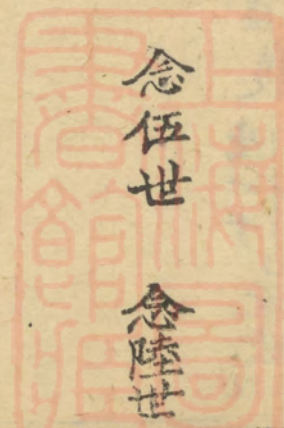 念伍世
念陸世